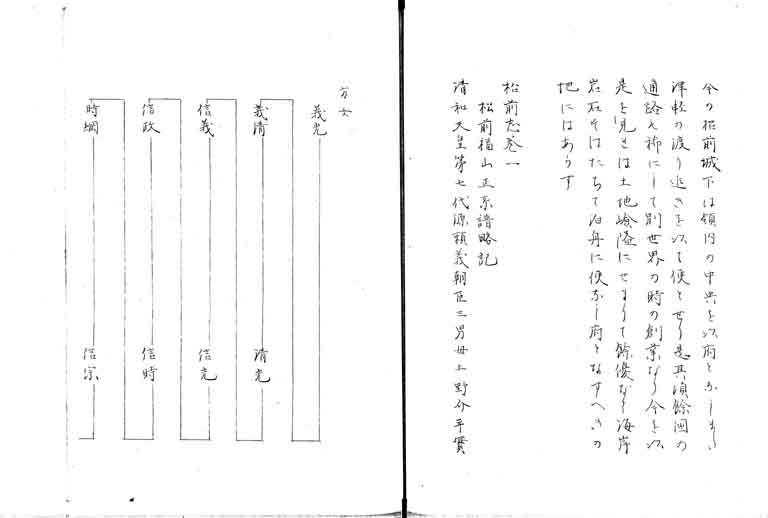 今の松前城下は領内の中央を以府となし
津軽の渡り近きを以て便とせり是其頃餘国の
通路も稀にして別世界の時の創業なり今を以
是を見れは土地嶮隘にせまりて餘優なく海岸
岩石そはたちて泊舟に便なし府となすへきの
地にはあらす
松前志巻一
松前福山正系譜略記
清和天皇第七代源頼義朝臣三男母上野介平實
方女
義光
義清 清光
信義 信光
信政 信時
時綱 信宗